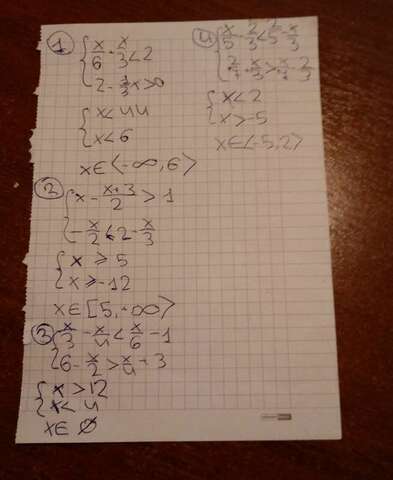 1
x/6 - x/3 < 2
2 - 1/3 x > 0
x < 44
x < 6
x ∈ ⟨-∞, 6⟩
2
x - x+3/2 > 1
-x/2 ≤ 2 - x/3
x ≥ 5
x ≥ -12
x ∈ [5, -∞⟩
3
x/3 - x/4 < x/6 - 1
6 - x/2 > x/4 + 3
x > 12
x < 4
x ∈ ∅
4
x/5 - 2/3 < 2/5 - x/3
x < 2
x > -5
x ∈ ⟨-5, 2⟩